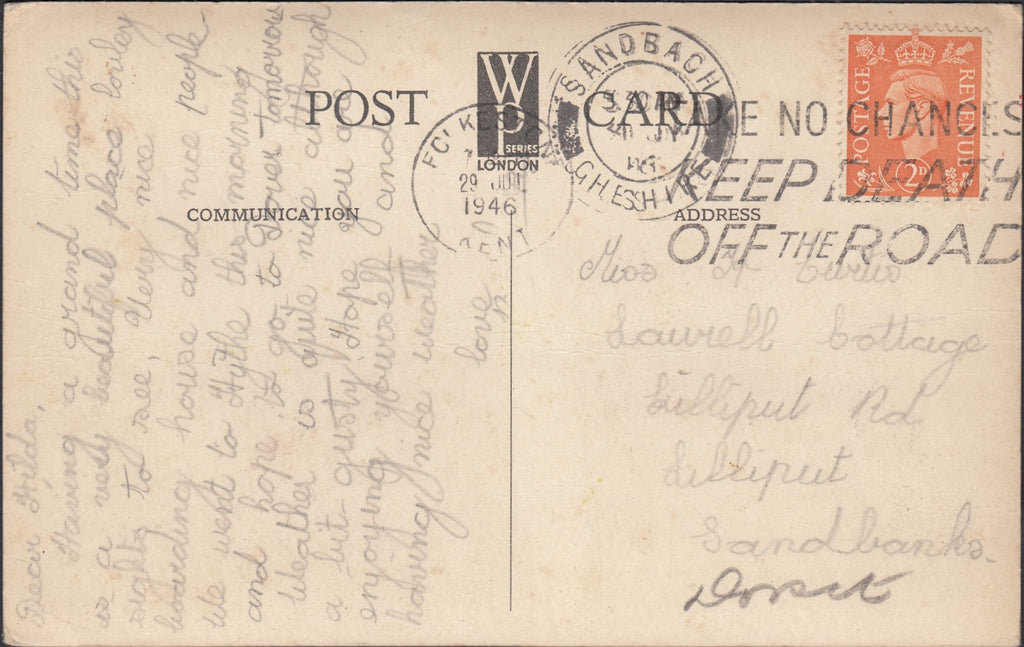 POST CARD
WP
SERIES
LONDON
COMMUNICATION
ADDRESS
FOLKESTONE
29 JUN
1946
KENT
SANDBACH
CHESHIRE
46
KE NO CHANCES
KEEP DEATH
OFF THE ROAD
POSTAGE
REVENUE
2D
Dear Hilda,
Having a grand time this
is a very beautiful place lovley
sights to see, Very nice
boarding house and nice people
We went to Hythe this morning
and hope to go to Dover tomorrow
Weather is quite nice although
a bit gusty, Hope you are
enjoying yourself and
having nice weather
love
Miss H
Laurell Cottage
Lilliput Rd
Lilliput
Sandbanks.
Dorset